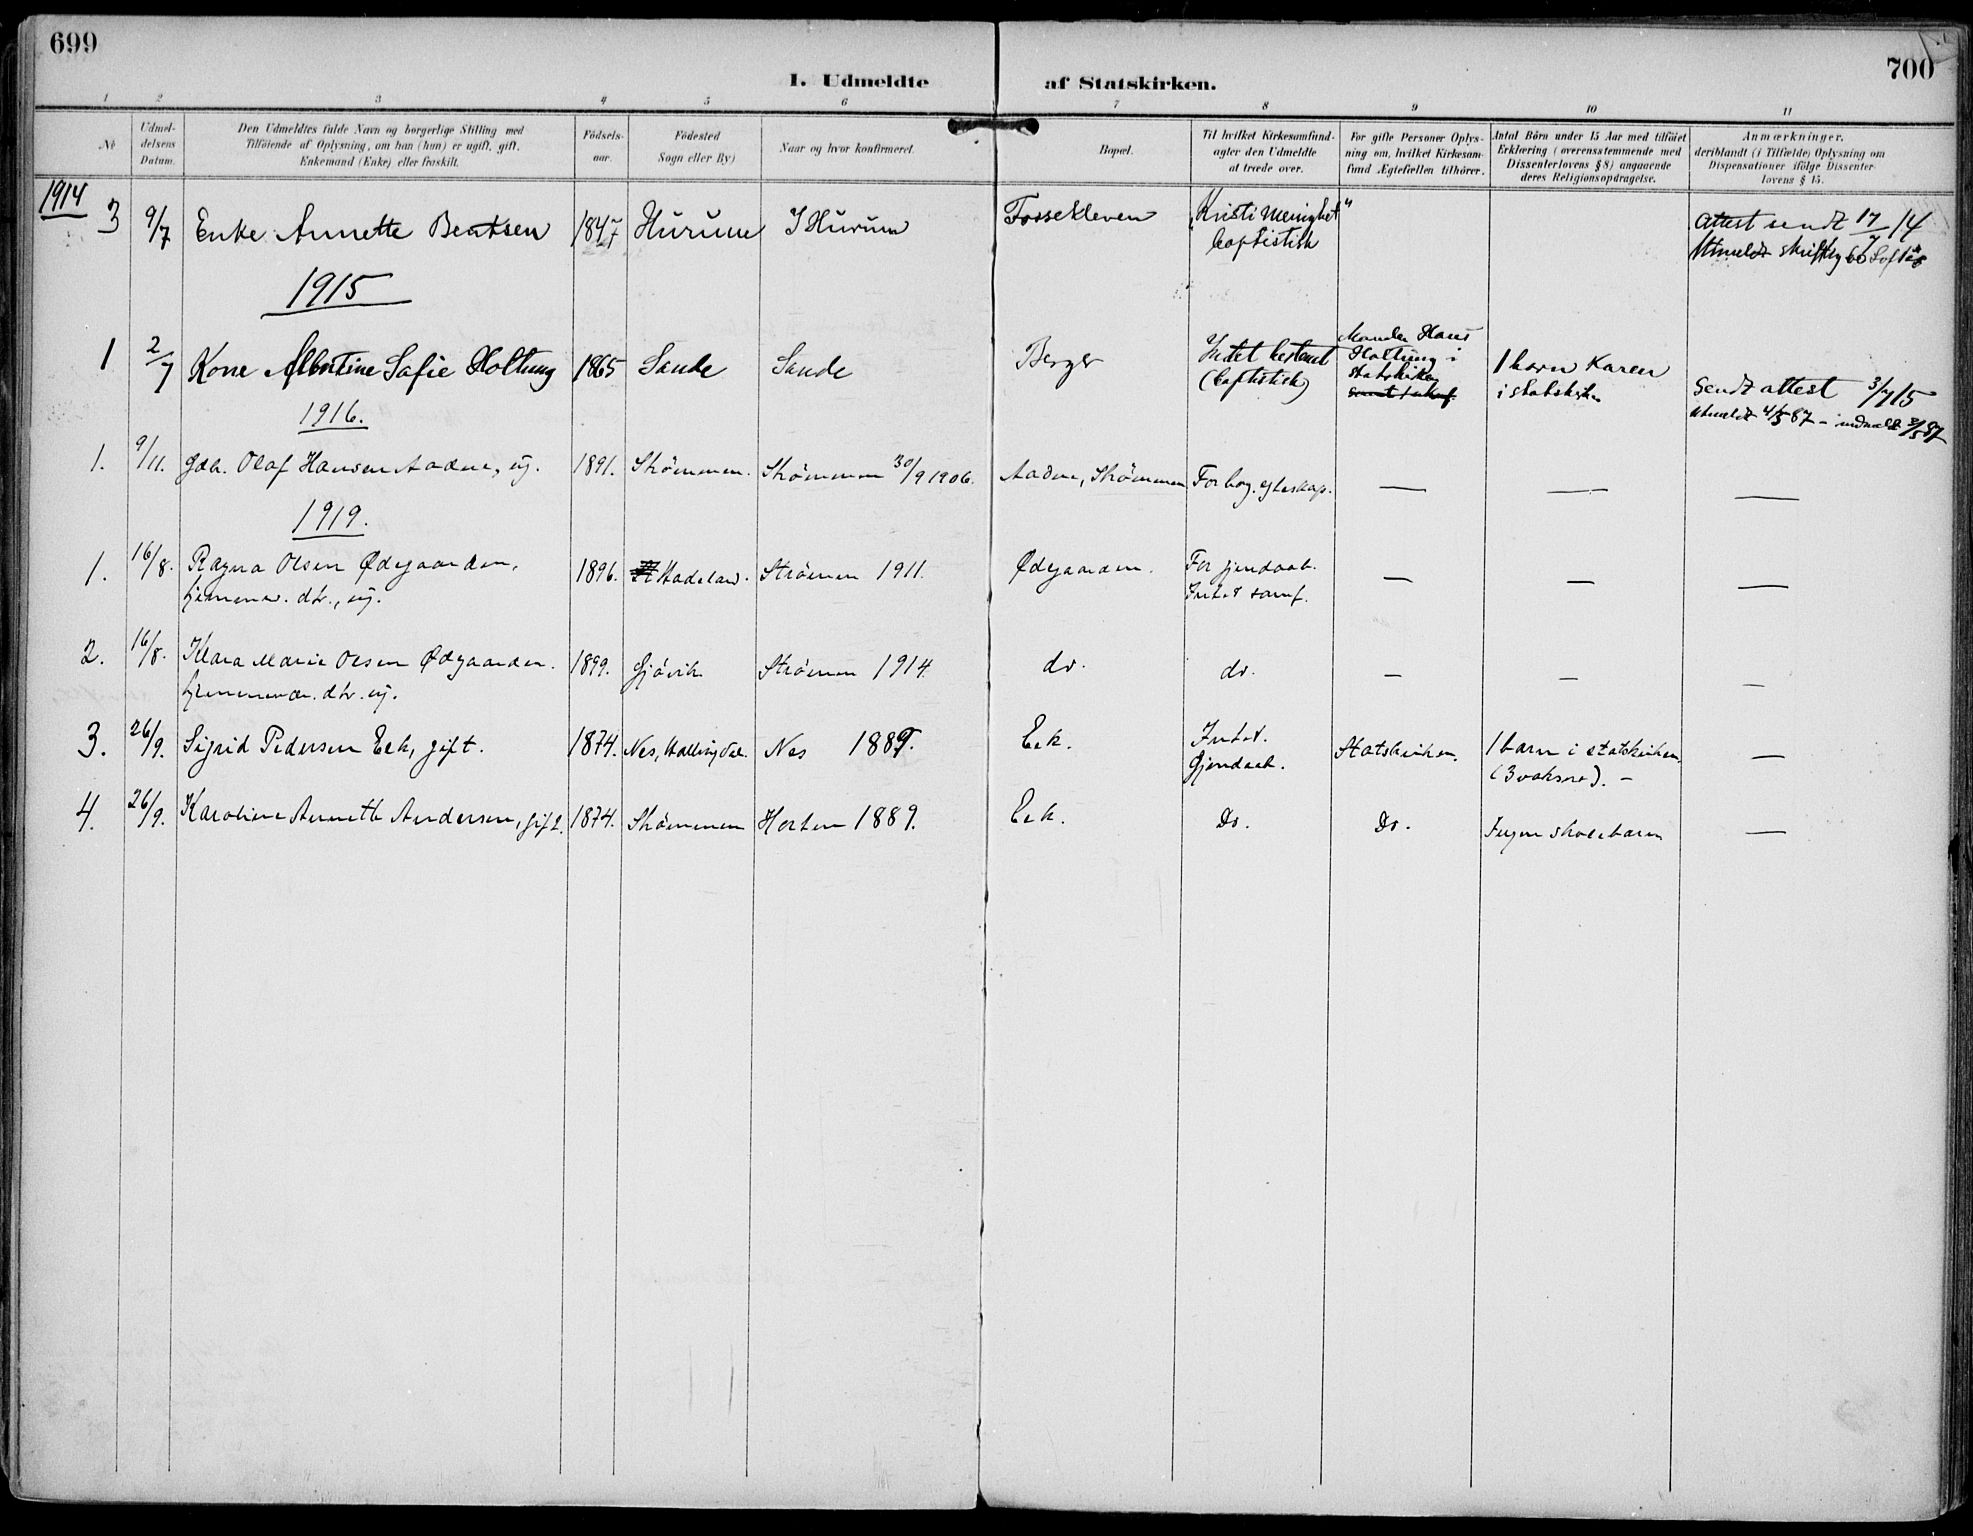 699
700
1. Udmeldte af Statskirken.
1 2 3 4 5 6 7 8 9 10 11
№
Udmel-
delsens
Datum.
Den Udmeldtes fulde Navn og borgerlige Stilling med
Tilföiende af Oplysning, om han (hun) er ugift, gift,
Enkemand (Enke) eller fraskilt.
Födsels-
aar.
Födested
Sogn eller By)
Naar og hvor konfirmeret.
Bopæl.
Til hvilket Kirkesamfund-
agter den Udmeldte
at træde over.
For gifte Personer Oplys-
ning om, hvilket Kirkesam-
fund Ægtefællen tilhörer.
Antal Börn under 15 Aar med tilföiet
Erklæring (overensstemmende med
Dissenterlovens § 8) angaaende
deres Religionsopdragelse.
Anmærkninger,
deriblandt (i Tilfælde) Oplysning om
Dispensationer ifölge Dissenter-
lovens § 15.
1914
3 9/7 Enke Annette Bentsen 1847 Hurum I Hurum Fossekleven "Kristi Menighet"
baptistisk
Attest sendt 17/7 14
Utmeldt skriftlig
1915
1 2/7 Kone Albertine Safie Holtung 1865 Sande Sande Berger Intet bestemt
(baptistisk)
Manden Hans
Holtung i
statskirken
1 barn Karen
i statskirken
Sendt attest 3/7 15
utmeldt 4/5 87 - indmeldt 3/5 87
1916.
1. 9/11. Gdb. Olaf Hansen Aadne, ug. 1891. Strömmen. Strömmen 30/9 1906. Aadne, Strömmen For bog. egteskap. — — —
1919.
1. 16/8. Ragna Olsen Ødegaarden, 1896. Hadeland. Strömm 1911. Ødegaarden. For gjendaab.
hjemmev. dtr., ug. Intet samf. — — —
2. 16/8. Klara Marie Olsen Ødegaarden. 1899. Gjövik Strömm 1914. do. do. — — —
hjemmevær. dtr. ug.
3. 26/9. Sigrid Pedersen Eek, gift. 1874. Nes, Hallingdal. Nes 1889. Eek. Intet.
Gjendaab. Statskirken. 1 barn i statskirken.
(3 voksne). — —
4. 26/9. Karoline Annette Andersen, gift. 1874. Strömmen Horten 1889. Eek. Do. Do. Ingen skolebarn —